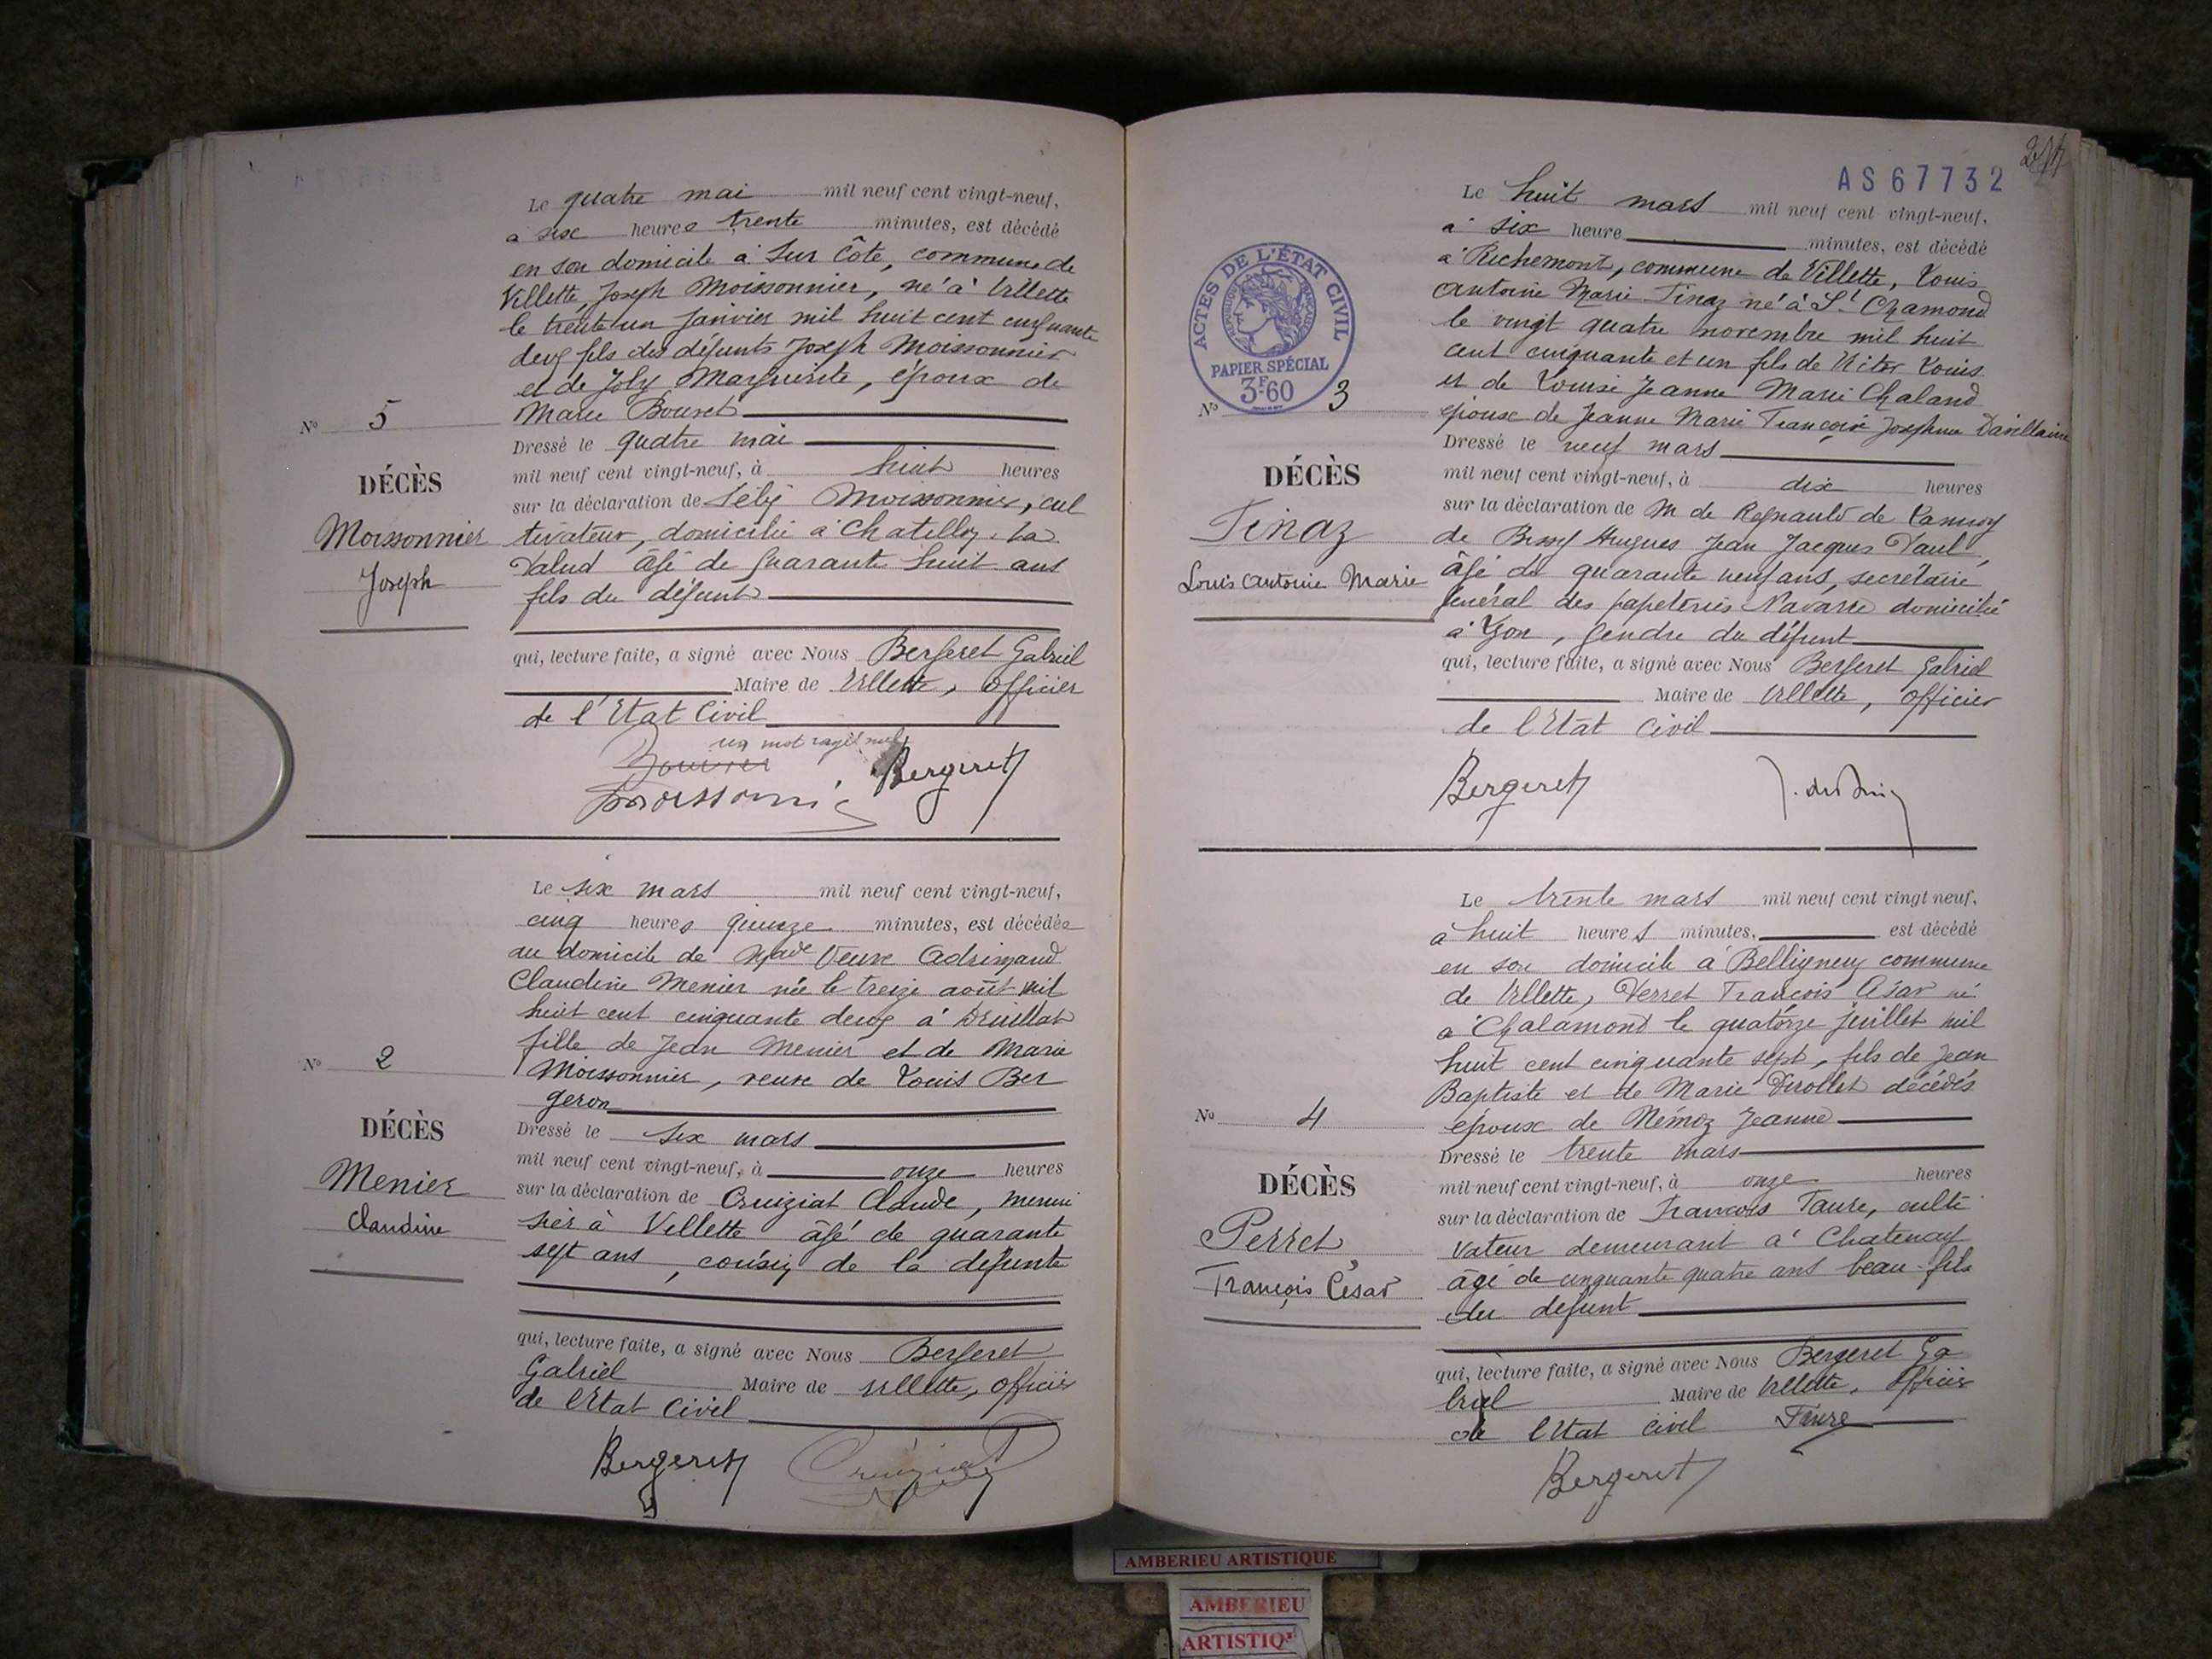 Le quatre mai mil neuf cent vingt-neuf,
a six heures trente minutes, est décédé
en son domicile à Sur Côte, commune de
Villette, Joseph Moissonnier, né à Villette
le trente un Janvier mil huit cent cinquante
deux fils des défunts Joseph Moissonnier
et de Joly Marguerite, époux de
Marie Bouvet
No 5
Dressé le quatre mai
mil neuf cent vingt-neuf, à huit heures
DÉCÈS
sur la déclaration de Moissonnier, cul
Moissonnier
tivateur, domicilié à Chatillon la
Joseph
Palud âgé de quarante huit ans
fils du défunt
qui, lecture faite, a signé avec Nous Bergeret Gabriel
Maire de Villette, officier
de l'Etat Civil
un mot rayé nul
Bouvier
Moissonnier Bergeret
Le six mars mil neuf cent vingt-neuf,
cinq heures quinze minutes, est décédée
au domicile de Made Veuve
Claudine Menier née le treize août mil
huit cent cinquante deux à Druillat
fille de Jean Menier et de Marie
Moissonnier, veuve de Louis Ber
geron
No 2
Dressé le six mars
mil neuf cent vingt-neuf, à onze heures
DÉCÈS
sur la déclaration de Cruiziat Claude, menui
Menier
sier à Villette âgé de quarante
Claudine
sept ans, cousin de la défunte
qui, lecture faite, a signé avec Nous Bergeret
Gabriel Maire de Villette, officier
de l'Etat Civil
Bergeret Cruiziat
AS 67732
Le huit mars mil neuf cent vingt-neuf,
à six heure minutes, est décédé
à Richemont, commune de Villette, Louis
Antoine Marie Tinaz né à St Chamond
le vingt quatre novembre mil huit
cent cinquante et un fils de Victor Louis
et de Louise Jeanne Marie Chaland
époux de Jeanne Marie Françoise Joséphine
ACTES DE L'ÉTAT CIVIL
RÉPUBLIQUE FRANÇAISE
PAPIER SPÉCIAL
3F.60
No 3
Dressé le neuf mars
mil neuf cent vingt-neuf, à dix heures
DÉCÈS
sur la déclaration de M de Regnauld de Lannoy
Tinaz
de Bissy Hugues Jean Jacques Paul,
Louis Antoine Marie
âgé de quarante neuf ans, secrétaire
général des papeteries Navarre domicilié
à Lyon, gendre du défunt
qui, lecture faite, a signé avec Nous Bergeret Gabriel
Maire de Villette, officier
de l'Etat civil
Bergeret
Le trente mars mil neuf cent vingt neuf,
à huit heures minutes, est décédé
en son domicile à Belligneux commune
de Villette, Perret François César né
à Chalamond le quatorze juillet mil
huit cent cinquante sept, fils de Jean
Baptiste et de Marie Pirollet décédés
époux de Némoz Jeanne
No 4
Dressé le trente mars
mil neuf cent vingt-neuf, à onze heures
DÉCÈS
sur la déclaration de François Faure, culti
Perret
vateur demeurant à Chatenay
François César
âgé de cinquante quatre ans beau-fils
du défunt
qui, lecture faite, a signé avec Nous Bergeret Ga
briel Maire de Villette, officier
de l'Etat civil Faure
Bergeret
AMBERIEU ARTISTIQUE
AMBERIEU
ARTISTIQ